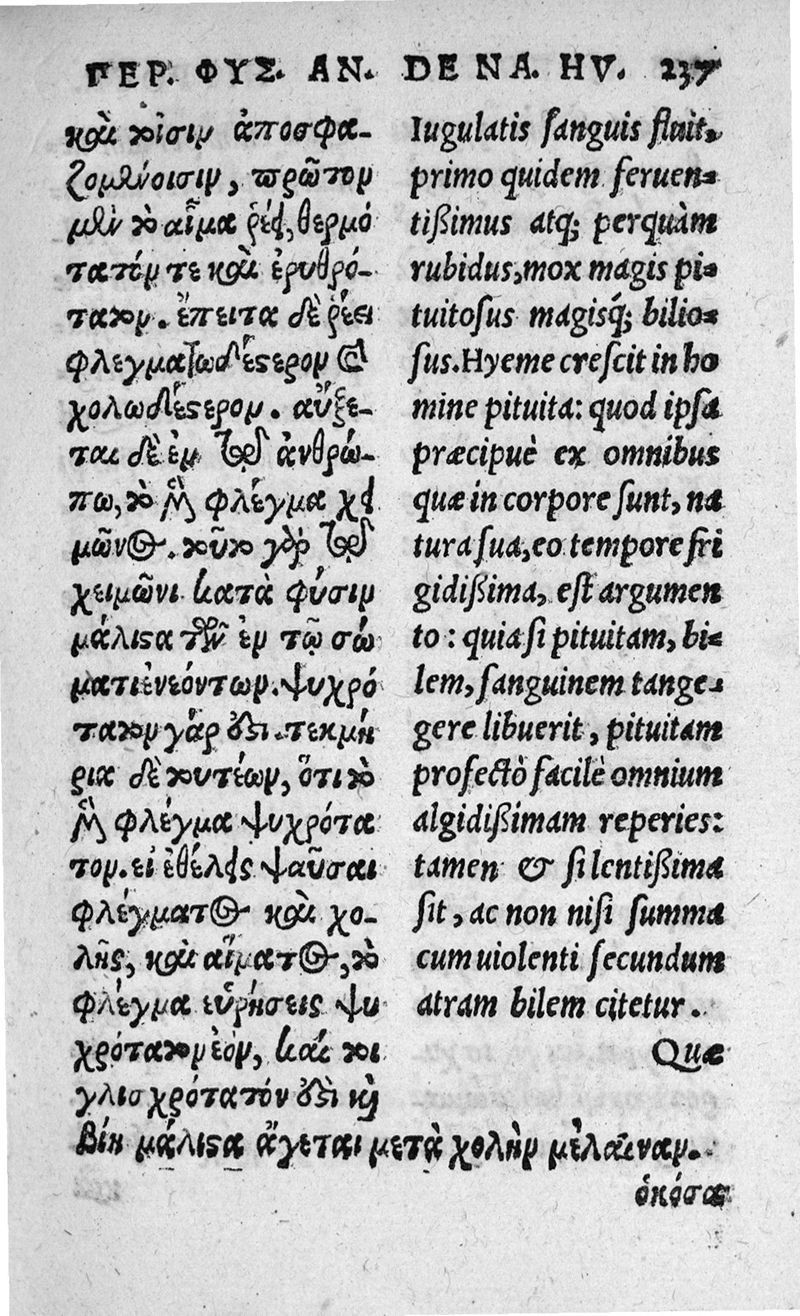 ΠΕΡ. ΦΥΣ. ΑΝ. DE NA. HV. 237
καὶ τοῖσιν ἀποσφα-
ζομένοισιν, πρῶτον
μὲν τὸ αἷμα ῥέει, θερμό
τατόν τε καὶ ἐρυθρό-
τατον. ἔπειτα δὲ ῥέει
φλεγματωδέστερον καὶ
χολωδέστερον. αὔξε-
ται δὲ ἐν τῷ ἀνθρώ-
πω, τὸ μὲν φλέγμα χει
μῶνος. τοῦτο γὰρ τῷ
χειμῶνι κατὰ φύσιν
μάλιστα τῶν ἐν τῷ σώ
ματι ἐνεόντων. ψυχρό
τατον γάρ ἐστι. τεκμή
ρια δὲ τουτέων, ὅτι τὸ
μὲν φλέγμα ψυχρότα
τον. εἰ ἐθέλεις ψαῦσαι
φλέγματος καὶ χο-
λῆς, καὶ αἵματος, τὸ
φλέγμα εὑρήσεις ψυ
χρότατον ἐόν, καί τοι
γλισχρότατόν ἐστι καὶ
βίη μάλιστα ἄγεται μετὰ χολὴν μέλαιναν.
ὁκόσα
Iugulatis ſanguis fluit,
primo quidem feruen-
tißimus atq; perquàm
rubidus, mox magis pi-
tuitoſus magisq́; bilio-
ſus. Hyeme creſcit in ho
mine pituita: quod ipſa
præcipuè ex omnibus
quæ in corpore ſunt, na
tura ſua, eo tempore fri
gidißima, eſt argumen
to: quia ſi pituitam, bi-
lem, ſanguinem tange-
gere libuerit, pituitam
profectò facilè omnium
algidißimam reperies:
tamen & ſi lentißima
ſit, ac non niſi ſumma
cum uiolenti ſecundum
atram bilem citetur.
Quæ